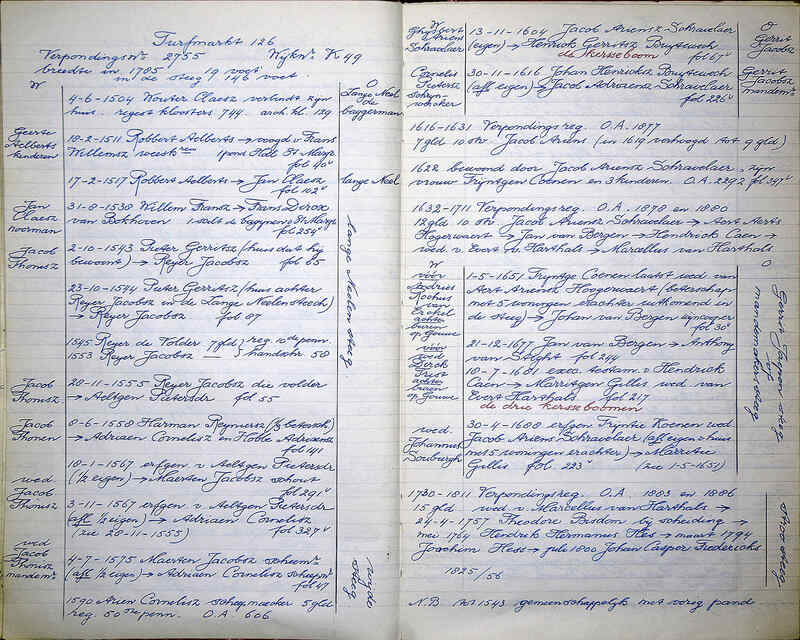 Turfmarkt 126
Verpondingsnr. 2755 Wijknr. K 49
breedte in 1785 19 voet
in de steeg 146 voet.
W
O
4-6-1504 Wouter Claesz verbindt zijn
huis. regest kloosters 744. arch. kl. 129
Lange Neel
de
baggerman
Geerte
Aelberts
kinderen
18-2-1511 Robbert Aelberts → voogd v. Frans
Willemsz weeskren 1pond Hall St Marye
fol 40v
17-2-1517 Robbert Aelberts → Jan Claesz
fol 102v
lange Neel
Jan
Claesz
noorman
31-8-1538 Willem Fransz → Frans Dircxz
van Bokhoven
fol 254v
Jacob
Thonisz
2-10-1543 Pieter Gerritsz (huis dat hij
bewoont) → Reyer Jacobsz fol 65
23-10-1544 Pieter Gerritsz (huis achter
Reyer Jacobsz in de Lange Neelensteech)
→ Reyer Jacobsz fol 87
lange Neelen steeg
1545 Reyer de Volder 7gld } reg 10de penn.
1553 Reyer Jacobsz } handschr 58
Jacob
Thonisz
28-11-1555 Reyer Jacobsz die volder
→ Aeltgen Pietersdr fol 55
Jacob
Thonen
8-6-1558 Harman Reyniersz (½ betersch)
→ Adriaen Cornelisz en Hobbe Adriaensz
fol 141
wed
Jacob
Thonisz
18-1-1567 erfgen v. Aeltgen Pietersdr
(½ eigen) → Maerten Jacobsz schout
fol 291v
3-11-1567 erfgen v. Aeltgen Pietersdr
(afl ½ eigen) → Adriaen Cornelisz
(zie 28-11-1555) fol 327v
wed
Jacob
Thonisz
mandemr
4-7-1575 Maerten Jacobsz scheemr
(afl ½ eigen) → Adriaen Cornelisz scheepmr
fol 47
zijde
steeg
1590 Arien Cornelisz schegmaecker 5gld
reg 50ste penn. O.A. 606
W
Ghijsbert
Ariens
Schravelaer
13-11-1604 Jacob Ariensz Schravelaer
(eigen) → Henrick Gerritsz Buytewech
de kerseboom fol 67v
O
Gerrit
Jacobsz
Cornelis
Pietersz
schryn-
wercker
30-11-1616 Johan Henricksz Buytewech
(afl eigen) → Jacob Adriaensz Schravelaer
fol 226v
Gerrit
Jacobsz
mandemr
1616-1631 Verpondingsreg. O.A. 1877
7gld 10 str. Jacob Ariens (in 1619 verhoogd tot 9 gld)
1622 bewoond door Jacob Ariensz Schravelaer, zijn
vrouw Fijntgen Coenen en 3 kinderen. O.A. 2272 fol 347v
1632-1711 Verpondingsreg. O.A. 1878 en 1880
12gld 10 str Jacob Ariensz Schravelaer → Aert Aerts
Hogerwaert → Jan van Bergen → Hendrick Caen →
wed. v. Evert v. Harthals → Marcellus van Harthals
W
O
vóór
Lodries
Rochus
van
Erckel
achter
buren
op Gouwe
1-5-1651 Fijntge Coenen laatst wed van
Aert Ariensz Hoogerwert (beterschap
met 5 woningen erachter uitkomend in
de steeg) → Johan van Bergen
fol 30v
vóór
wed
Dirck
Triest
achter
buren
op Gouwe
21-12-1677 Jan van Bergen → Anthony
van Soeght fol 244
10-7-1681 exec. testam. v. Hendrick
Caen → Marritgen Gilles wed. van
Evert Harthals fol 217
de drie kersseboomen
Gerrit Jaspen steeg
of
mandemakersteeg
wed.
Johannes
Souburgh
30-4-1688 erfgen Fijntie Koenen wed
Jacob Ariens Schravelaer (afl eigen v huis
met 5 woningen erachter) → Marritie
Gillis fol. 223v (zie 1-5-1651)
1730-1811 Verpondingsreg. O.A. 1883 en 1886
15 gld. wed v. Marcellus van Harthals →
24-4-1757 Theodore Busdom bij scheiding →
mei 1764 Hendrik Hermanus Hess → maart 1794
Joachem Hess → juli 1800 Johan Casper Frederichs
1825/56
N.B. tot 1543 gemeenschappelijk met vorig pand